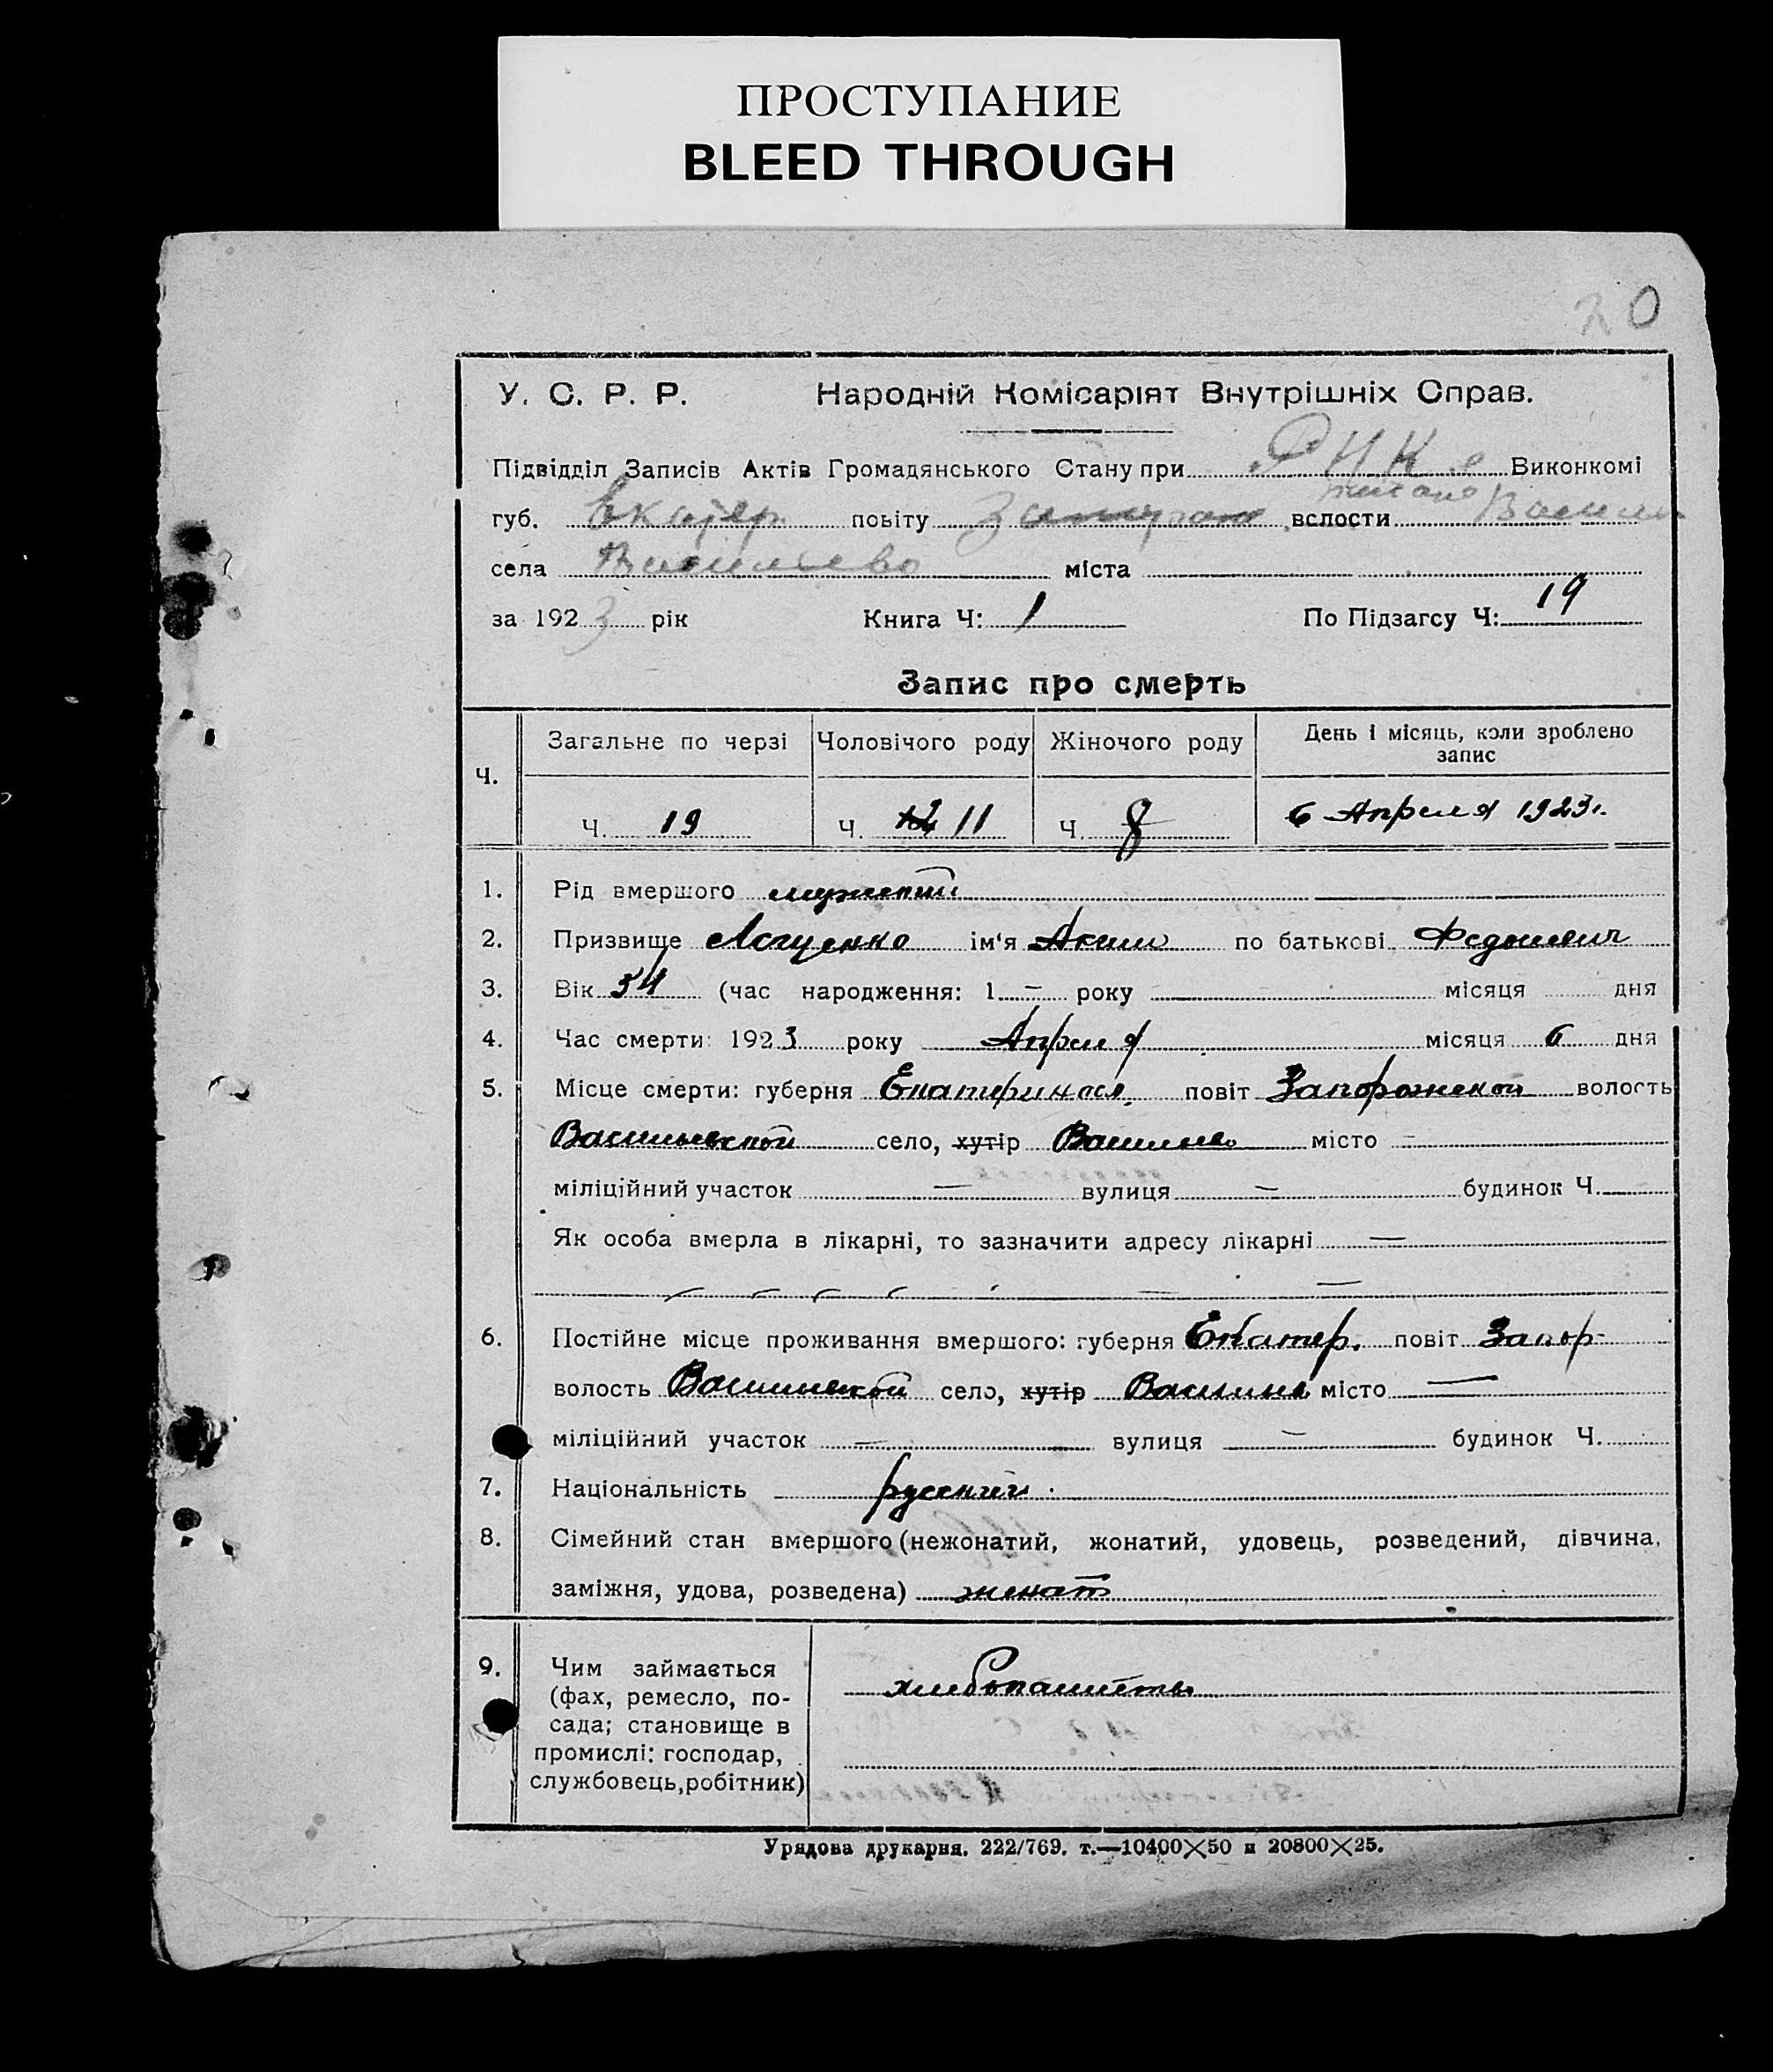 ПРОСТУПАНИЕ
BLEED THROUGH
20
У. С. Р. Р. Народній Комісаріят Внутрішніх Справ.
Підвідділ Записів Актів Громадянського Стану при РИК Виконкомі
губ. Екатер повіту волости Васильев
села Васильево міста
за 1923 рік Книга Ч: 1 По Підзагсу Ч: 19
Запис про смерть
Ч. Загальне по черзі Чоловічого роду Жіночого роду День і місяць, коли зроблено запис
Ч. 19 Ч. 11 Ч. 8 6 Апреля 1923г.
1. Рід вмершого мужской
2. Призвище ім'я Аким по батькові
3. Вік 54 (час народження: 1 — року — місяця дня
4. Час смерти: 1923 року Апреля місяця 6 дня
5. Місце смерти: губерня Екатериносл. повіт Запорожской волость
Васильевской село, хутір Васильево місто —
міліційний участок — вулиця — будинок Ч.
Як особа вмерла в лікарні, то зазначити адресу лікарні —
6. Постійне місце проживання вмершого: губерня Екатер. повіт Запор-
волость Васильевской село, хутір Васильев місто —
міліційний участок — вулиця — будинок Ч.
7. Національність русский.
8. Сімейний стан вмершого (нежонатий, жонатий, удовець, розведений, дівчина,
заміжня, удова, розведена) женат
9. Чим займається
(фах, ремесло, по-
сада; становище в
промислі: господар,
службовець, робітник)
хлебопашеть
Урядова друкарня. 222/769. т.—10400×50 и 20800×25.